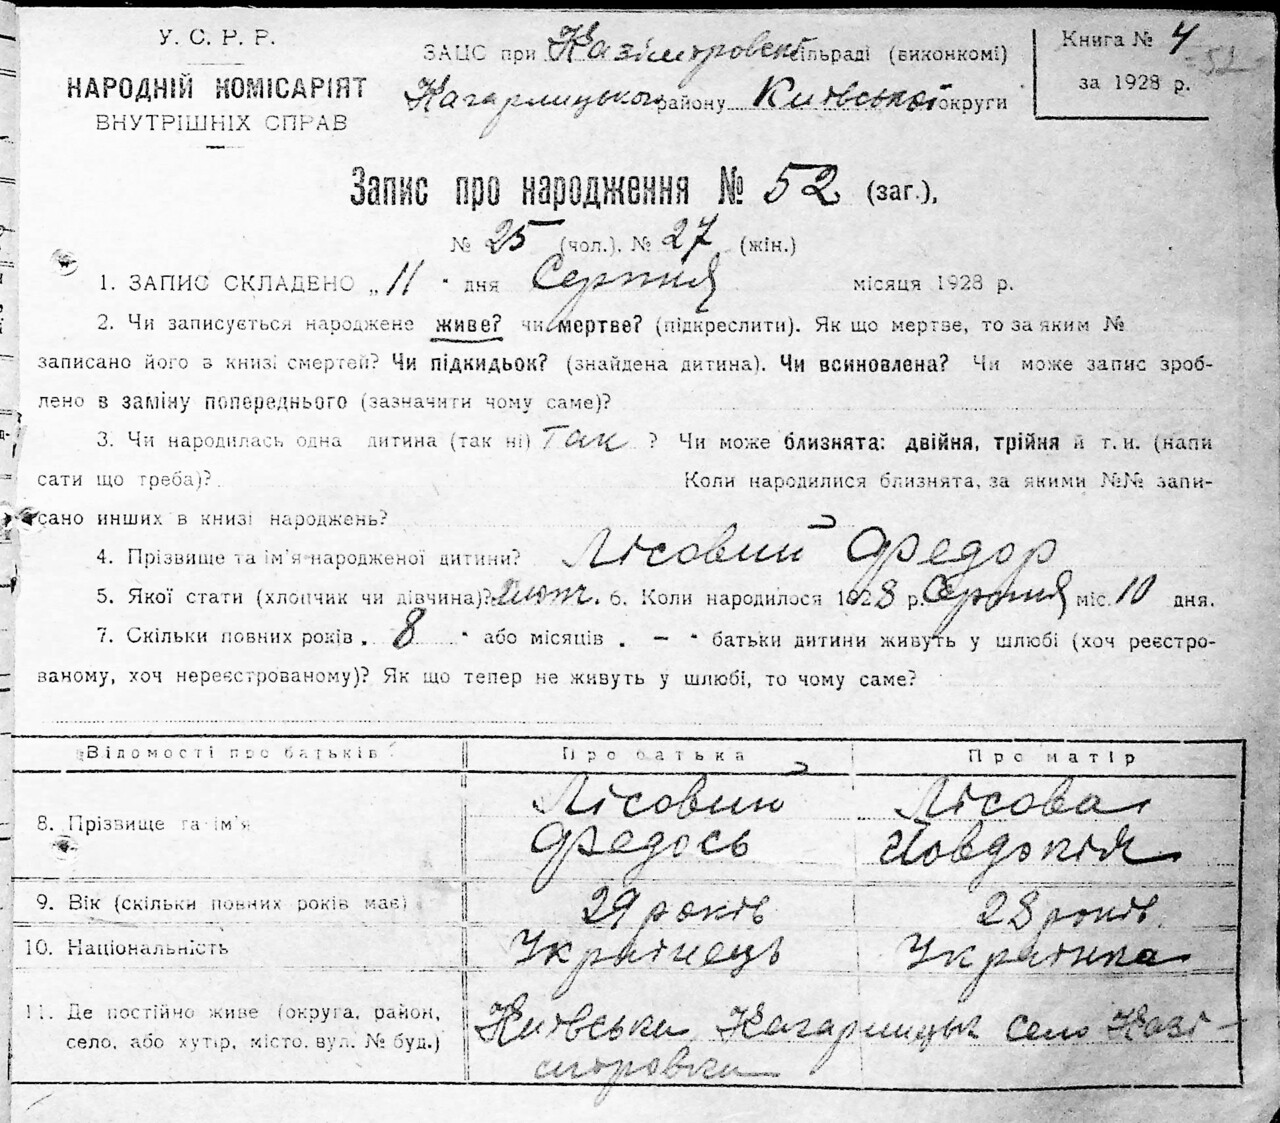 У. С. Р. Р.
НАРОДНІЙ КОМІСАРІЯТ
ВНУТРІШНІХ СПРАВ
ЗАЦС при Казіміровскі сільраді (виконкомі)
Кагарлицького району Київської округи
Книга № 4
52
за 1928 р.
Запис про народження № 52 (заг.),
№ 25 (чол.). № 27 (жін.)
1. ЗАПИС СКЛАДЕНО „11" дня Серпня місяця 1928 р.
2. Чи записується народжене живе? чи мертве? (підкреслити). Як що мертве, то за яким №
записано його в книзі смертей? Чи підкидьок? (знайдена дитина). Чи всиновлена? Чи може запис зроб-
лено в заміну попереднього (зазначити чому саме)?
3. Чи народилась одна дитина (так ні) Так ? Чи може близнята: двійня, трійня й т. и. (напи
сати що треба)? Коли народилися близнята, за якими №№ запи-
сано инших в книзі народжень?
4. Прізвище та ім'я народженої дитини? Лісовий Федор
5. Якої стати (хлопчик чи дівчина)? 6. Коли народилося 1928 р. Серпня міс. 10 дня.
7. Скільки повних років. 8 " або місяців. — " батьки дитини живуть у шлюбі (хоч реєстро-
ваному, хоч нереєстрованому)? Як що тепер не живуть у шлюбі, то чому саме?
Відомості про батьків Про батька Про матір
8. Прізвище та ім'я Лісовий Федось Лісовая Йовдокія
9. Вік (скільки повних років має) 29 років 28 років
10. Національність Українець Українка
11. Де постійно живе (округа, район, Київська Кагарлицьк село Казі-
село, або хутір, місто, вул. № буд.) міровка